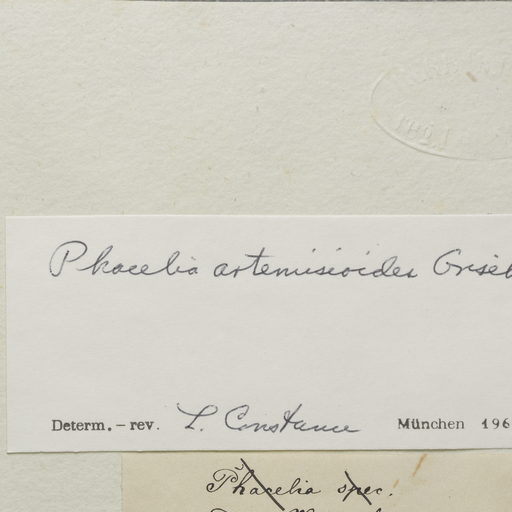 Phacelia artemisioides Griseb
Determ. – rev. L. Constance München 196
Phacelia spec.